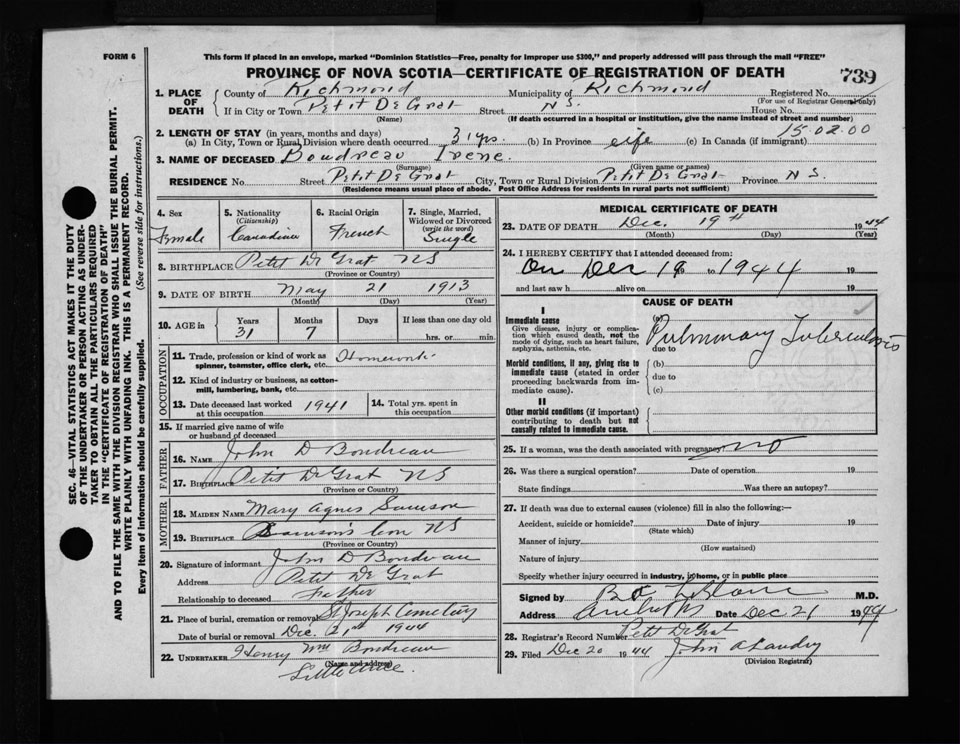 FORM 6
This form if placed in an envelope, marked "Dominion Statistics—Free, penalty for improper use $300," and properly addressed will pass through the mail "FREE"
PROVINCE OF NOVA SCOTIA—CERTIFICATE OF REGISTRATION OF DEATH 739
1. PLACE OF DEATH County of Richmond Municipality of Richmond Registered No.
(For use of Registrar General only)
If in City or Town Petit De Grat Street N S. House No.
(Name) (If death occurred in a hospital or institution, give the name instead of street and number)
2. LENGTH OF STAY (in years, months and days) 15.02.00
(a) In City, Town or Rural Division where death occurred 31 yrs. (b) In Province life (c) In Canada (if immigrant)
3. NAME OF DECEASED Boudreau Irene.
(Surname) (Given name or names)
RESIDENCE No. Street Petit De Grat City, Town or Rural Division Petit De Grat Province N S.
(Residence means usual place of abode. Post Office Address for residents in rural parts not sufficient)
4. Sex Female
5. Nationality (Citizenship) Canadian
6. Racial Origin French
7. Single, Married, Widowed or Divorced (write the word) Single
8. BIRTHPLACE Petit De Grat NS
(Province or Country)
9. DATE OF BIRTH May 21 1913
(Month) (Day) (Year)
10. AGE in Years 31 Months 7 Days If less than one day old hrs. or min.
OCCUPATION
11. Trade, profession or kind of work as spinner, teamster, office clerk, etc. Homework
12. Kind of industry or business, as cotton-mill, lumbering, bank, etc.
13. Date deceased last worked at this occupation 1941
14. Total yrs. spent in this occupation
15. If married give name of wife or husband of deceased
FATHER
16. NAME John D Boudreau
17. BIRTHPLACE Petit De Grat NS
(Province or Country)
MOTHER
18. MAIDEN NAME Mary Agnes Samson
19. BIRTHPLACE Samson's Cove NS
(Province or Country)
20. Signature of informant John D Boudreau
Address Petit De Grat
Relationship to deceased Father
21. Place of burial, cremation or removal St Joseph Cemetery
Date of burial or removal Dec. 21st 1944
22. UNDERTAKER Henry Wm Boudreau
(Name and address)
Little Anse.
MEDICAL CERTIFICATE OF DEATH
23. DATE OF DEATH Dec. 19th 1944
(Month) (Day) (Year)
24. I HEREBY CERTIFY that I attended deceased from:
On Dec 19 to 1944 19
and last saw h alive on 19
CAUSE OF DEATH
I
Immediate cause
Give disease, injury or complication which caused death, not the mode of dying, such as heart failure, asphyxia, asthenia, etc.
(a) Pulmonary Tuberculosis
due to
Morbid conditions, if any, giving rise to immediate cause (stated in order proceeding backwards from immediate cause).
(b)
due to
(c)
II
Other morbid conditions (if important) contributing to death but not causally related to immediate cause.
25. If a woman, was the death associated with pregnancy? no
26. Was there a surgical operation? Date of operation 19
State findings Was there an autopsy?
27. If death was due to external causes (violence) fill in also the following:—
Accident, suicide or homicide? Date of injury 19
(State which)
Manner of injury
(How sustained)
Nature of injury
Specify whether injury occurred in industry, in home, or in public place
Signed by LeBlanc M.D.
Address Arichat NS Date Dec 21 1944
28. Registrar's Record Number Petit De Grat
29. Filed Dec 20 1944 John A Landry
(Division Registrar)
SEC. 46—VITAL STATISTICS ACT MAKES IT THE DUTY
OF THE UNDERTAKER OR PERSON ACTING AS UNDER-
TAKER TO OBTAIN ALL THE PARTICULARS REQUIRED
IN THE "CERTIFICATE OF REGISTRATION OF DEATH"
AND TO FILE THE SAME WITH THE DIVISION REGISTRAR WHO SHALL ISSUE THE BURIAL PERMIT.
WRITE PLAINLY WITH UNFADING INK. THIS IS A PERMANENT RECORD.
Every item of information should be carefully supplied. (See reverse side for instructions.)